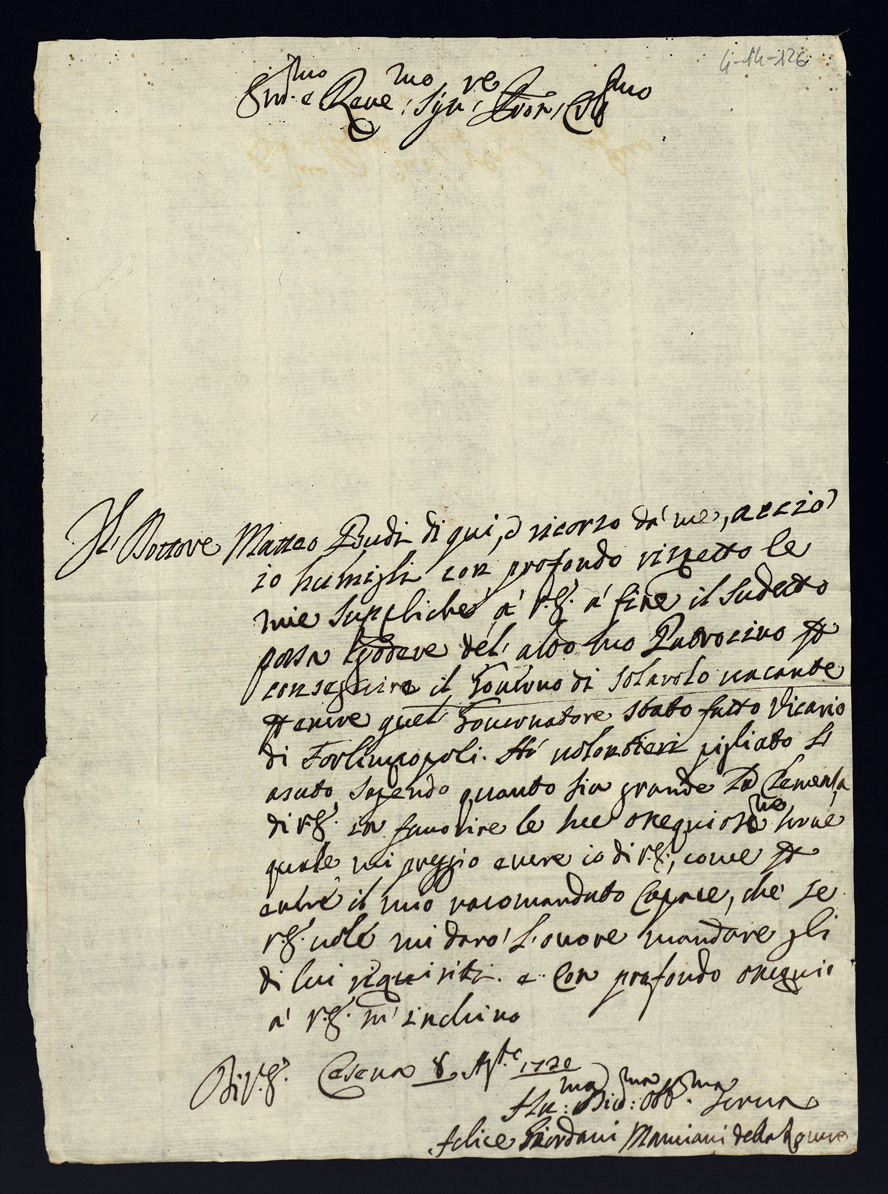 4-14-126
Ill.mo e Reve.mo Sig.re Pron. Col.mo
Il Dottore Matteo Budi di qui, è ricorso da me, acciò
io humigli con profondo rispetto le
mie suppliche à V.E. à fine il sudetto
possa godere del' alto suo Patrocino p
conseguire il Governo di Solarolo vacante
p avere quel Governatore stato fatto Vicario
di Forlimpopoli. Hò volontieri pigliato L'
asuto sapendo quanto sia grande La Clemenza
di V.E. in favorire le sue osequios.me serve
quale mi preggio avere io di V.E., come p
il mio racomandato Capace, che se
V.E. vole mi darò L'onore mandare gli
di lui requisiti. e Con profondo osequio
a' V.E. m'inchino
Di V.E. Cesena 8 Ag.to 1720
Hu.ma Div.ma Obb.ma Serva
Felice Giordani Mamiani della Rovere